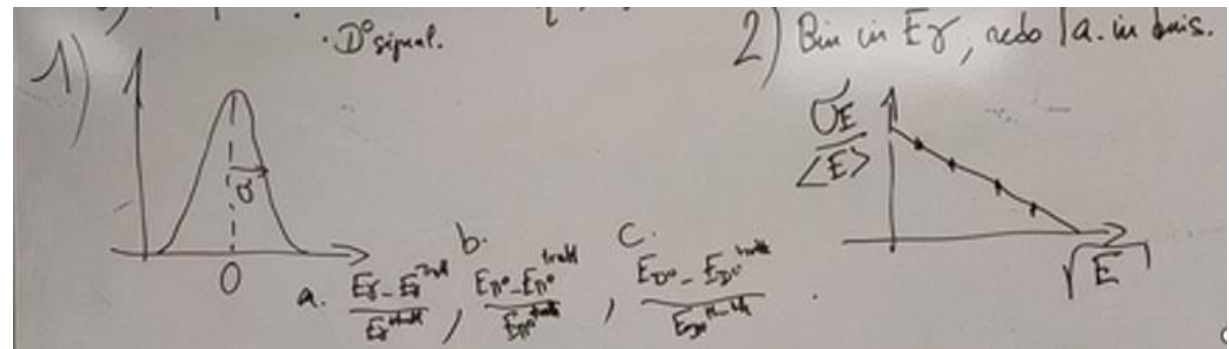 · D° signal.
1)
σ
0
a. Eγ - Eγ^truth / Eγ^truth ,
b. Eπ° - Eπ°^truth / Eπ°^truth ,
c. E_D° - E_D°^truth / E_D°^truth .
2) Bin in Eγ, redo 1a. in bins.
σE / <E>
√E